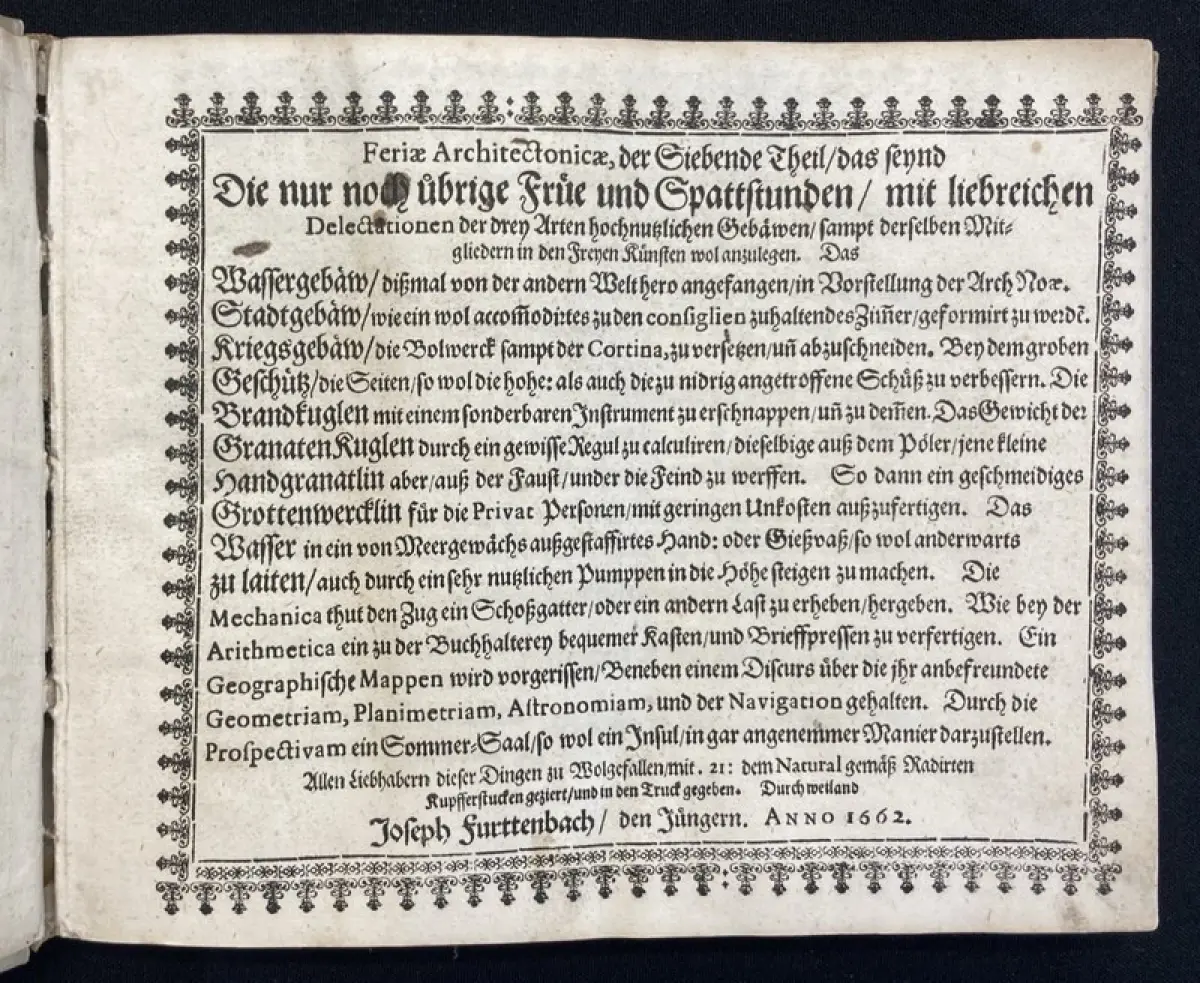 Feriæ Architectonicæ, der Siebende Theil/das seynd
Die nur noch übrige Früe und Spattstunden/ mit liebreichen
Delectationen der drey Arten hochnutzlichen Gebäwen/ sampt derselben Mit-
gliedern in den Freyen Künsten wol anzulegen. Das
Wassergebäw/ dißmal von der andern Welt hero angefangen/in Vorstellung der Arch Noæ.
Stadtgebäw/wie ein wol accom̃odirtes zu den consiglien zuhaltendes Zim̃er/geformirt zu werdẽ.
Kriegsgebäw/die Bolwerck sampt der Cortina, zu versetzen/uñ abzuschneiden. Bey dem groben
Geschütz/die Seiten/so wol die hohe: als auch die zu nidrig angetroffene Schüß zu verbessern. Die
Brandkuglen mit einem sonderbaren Instrument zu erschnappen/uñ zu dem̃en. Das Gewicht der
Granaten Kuglen durch ein gewisse Regul zu calculiren/dieselbige auß dem Pöler/jene kleine
Handgranatlin aber/auß der Faust/under die Feind zu werffen. So dann ein geschmeidiges
Grottenwercklin für die Privat Personen/mit geringen Unkosten außzufertigen. Das
Wasser in ein von Meergewächs außgestaffirtes Hand: oder Gießvaß/so wol anderwarts
zu laiten/auch durch ein sehr nutzlichen Pumppen in die Höhe steigen zu machen. Die
Mechanica thut den Zug ein Schoßgatter/oder ein andern Last zu erheben/hergeben. Wie bey der
Arithmetica ein zu der Buchhalterey bequemer Kasten/und Brieffpressen zu verfertigen. Ein
Geographische Mappen wird vorgerissen/Beneben einem Discurs über die jhr anbefreundete
Geometriam, Planimetriam, Astronomiam, und der Navigation gehalten. Durch die
Prospectivam ein Sommer-Saal/so wol ein Insul/in gar angenemmer Manier darzustellen.
Allen Liebhabern dieser Dingen zu Wolgefallen/mit. 21: dem Natural gemäß Radirten
Kupfferstucken geziert/und in den Truck gegeben. Durch weiland
Joseph Furttenbach/ den Jüngern. ANNO 1662.